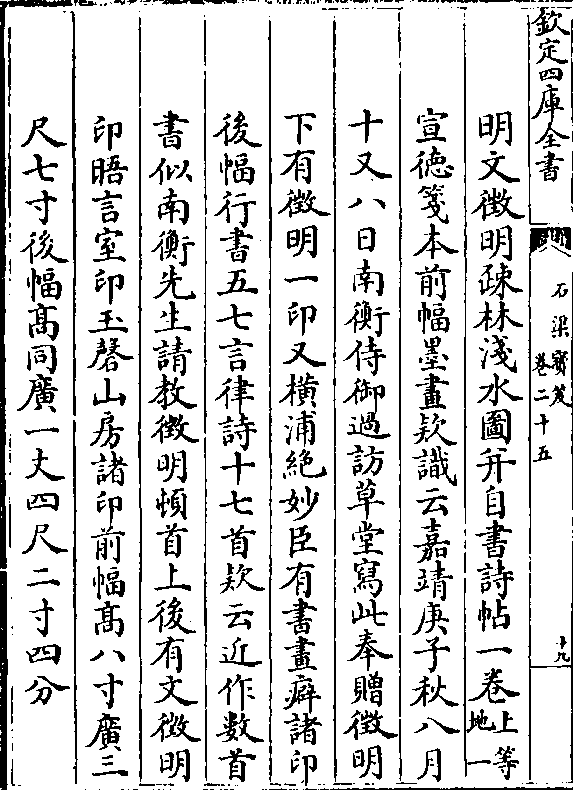 欽定四庫全書
石渠寳笈
卷二十五
十九
明文徴明疎林淺水圖并自書詩帖一卷上等
地一
宣徳箋本前幅墨畫欵識云嘉靖庚子秋八月
十又八日南衡侍御過訪草堂寫此奉贈徴明
下有徴明一印又横浦絶妙臣有書畫癖諸印
後幅行書五七言律詩十七首欵云近作數首
書似南衡先生請教徴明頓首上後有文徴明
印晤言室印玉磬山房諸印前幅髙八寸廣三
尺七寸後幅髙同廣一丈四尺二寸四分